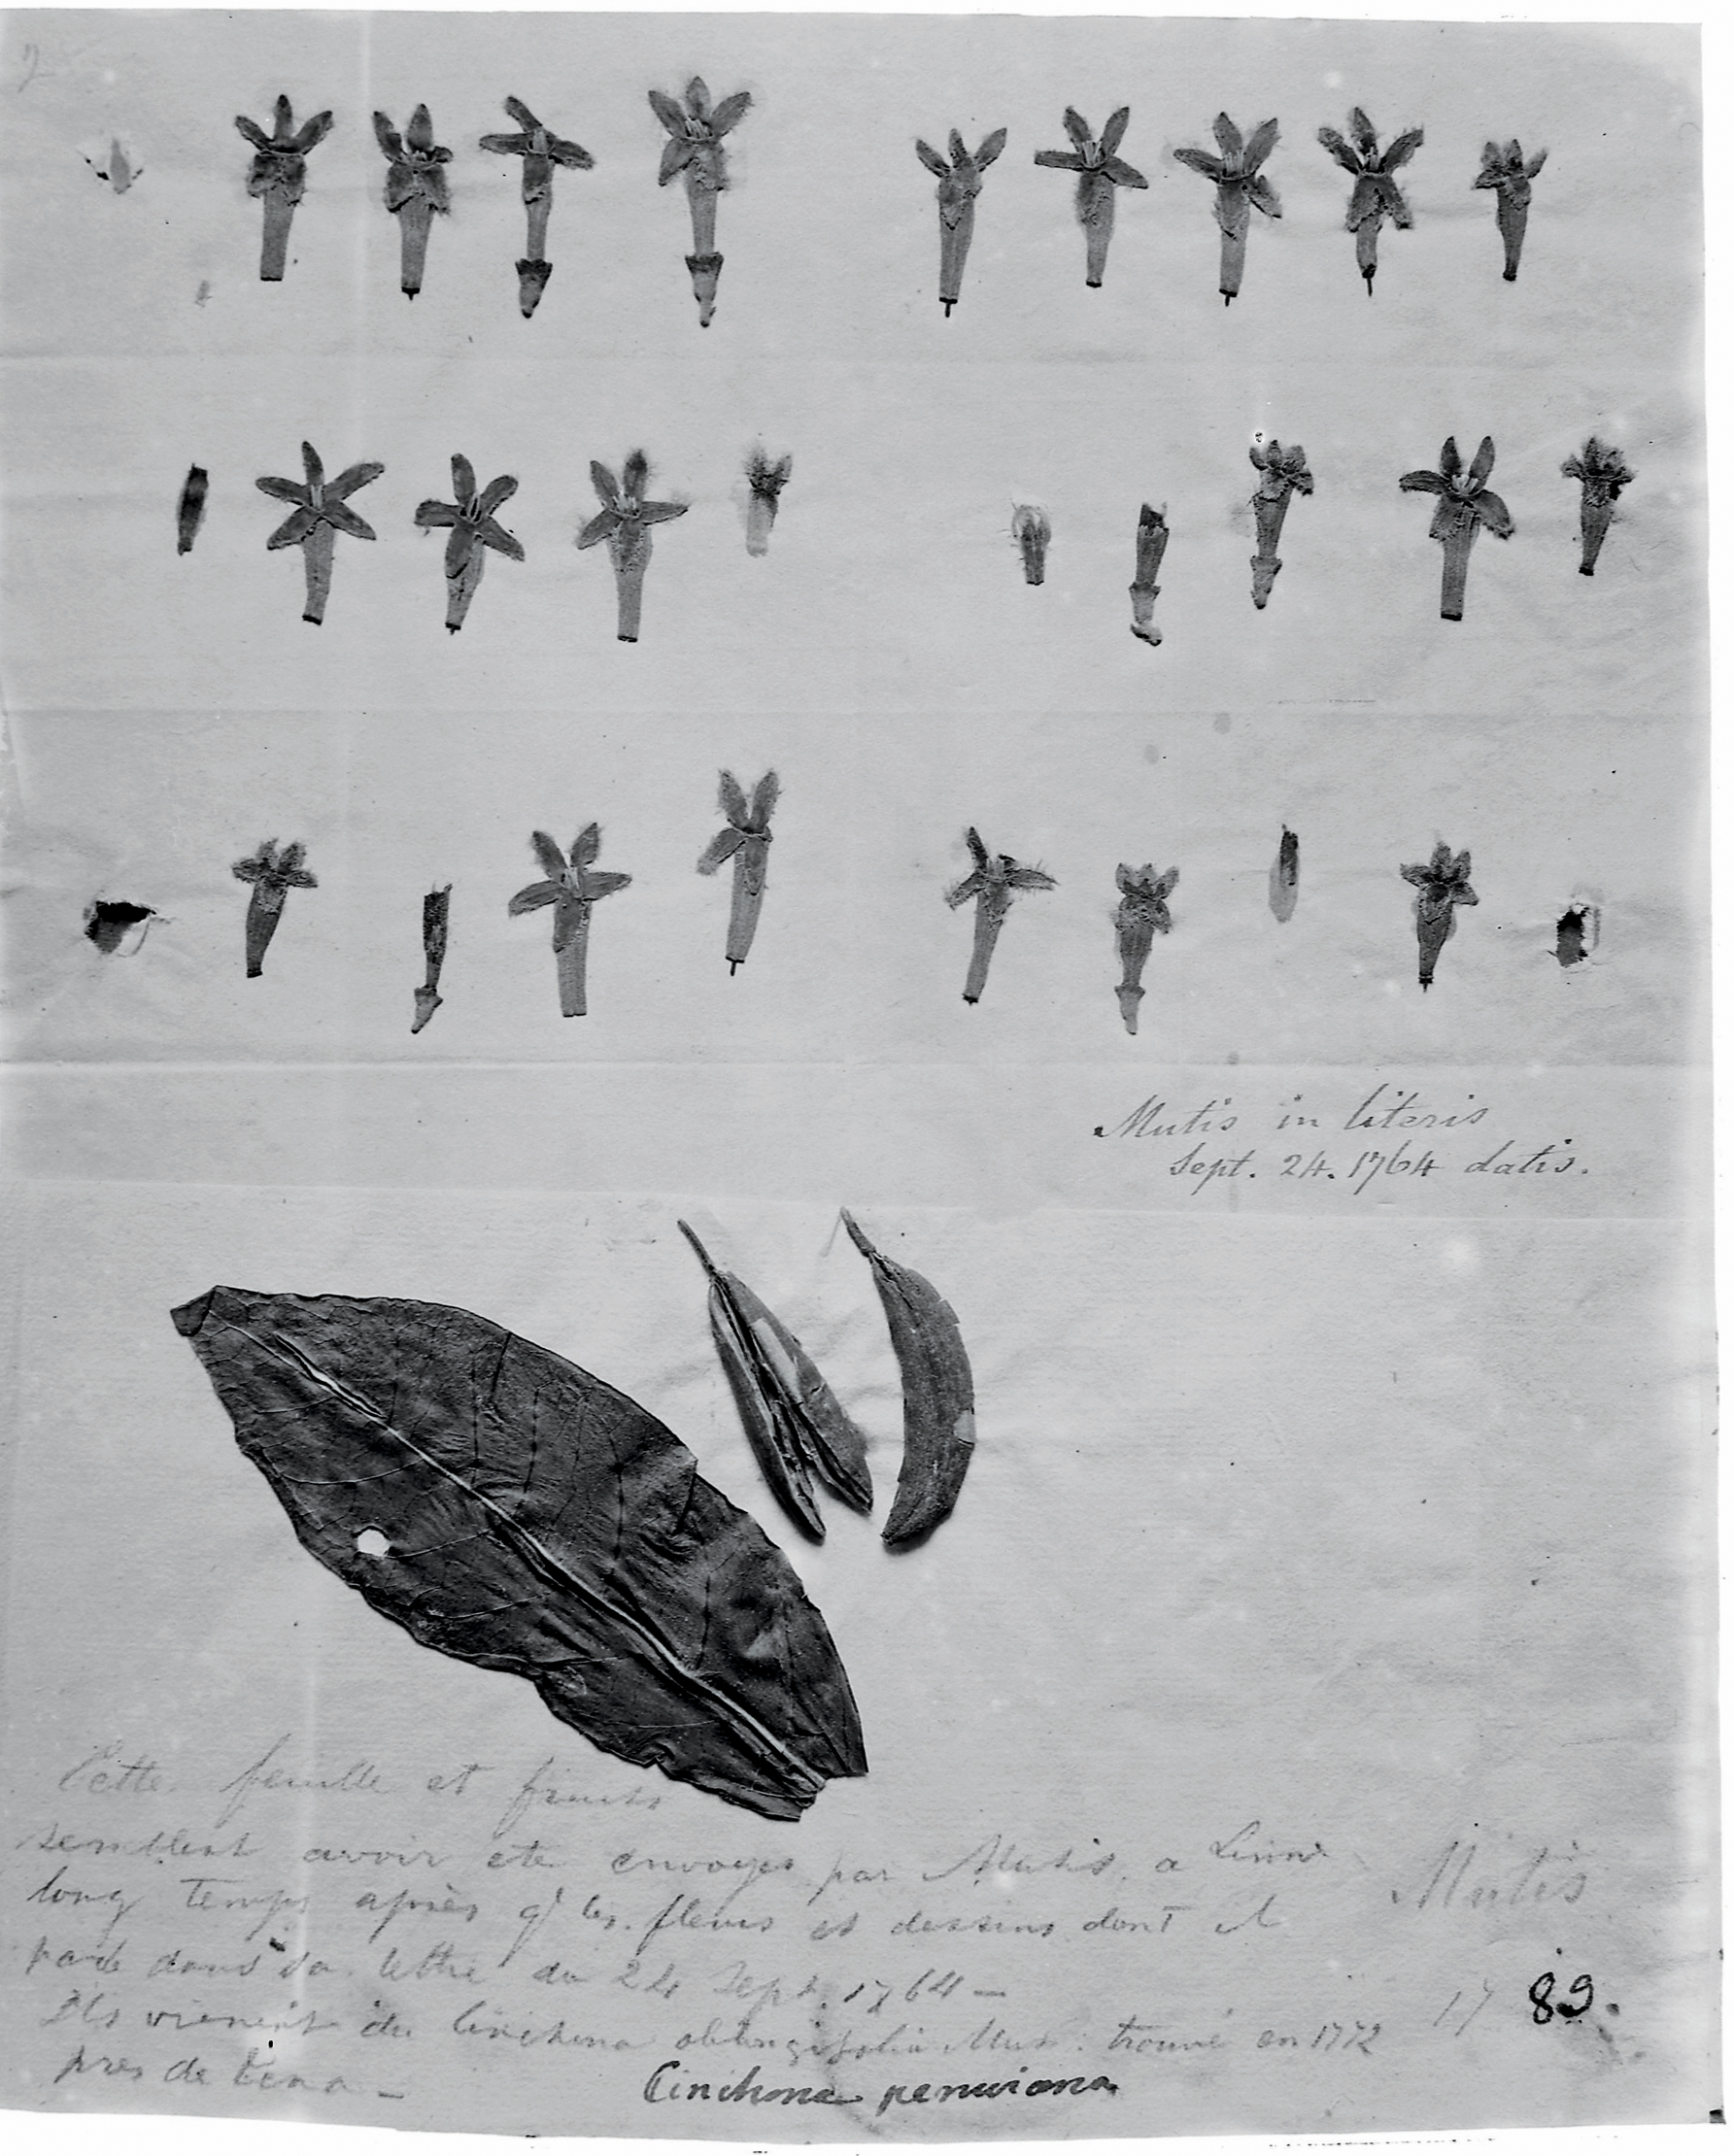 Mutis in literis
Sept. 24. 1764 datis.
Cette feuille et fruits
semblent avoir ete envoyes par Mutis a Linn
long temps après q' les fleurs et dessins dont il
parle dans sa lettre du 24 Sept. 1764 —
Mutis
Ils vienent du Cinchona oblongifolia Mut: trouvé en 1772
17 89.
pres de tena —
Cinchona peruviana